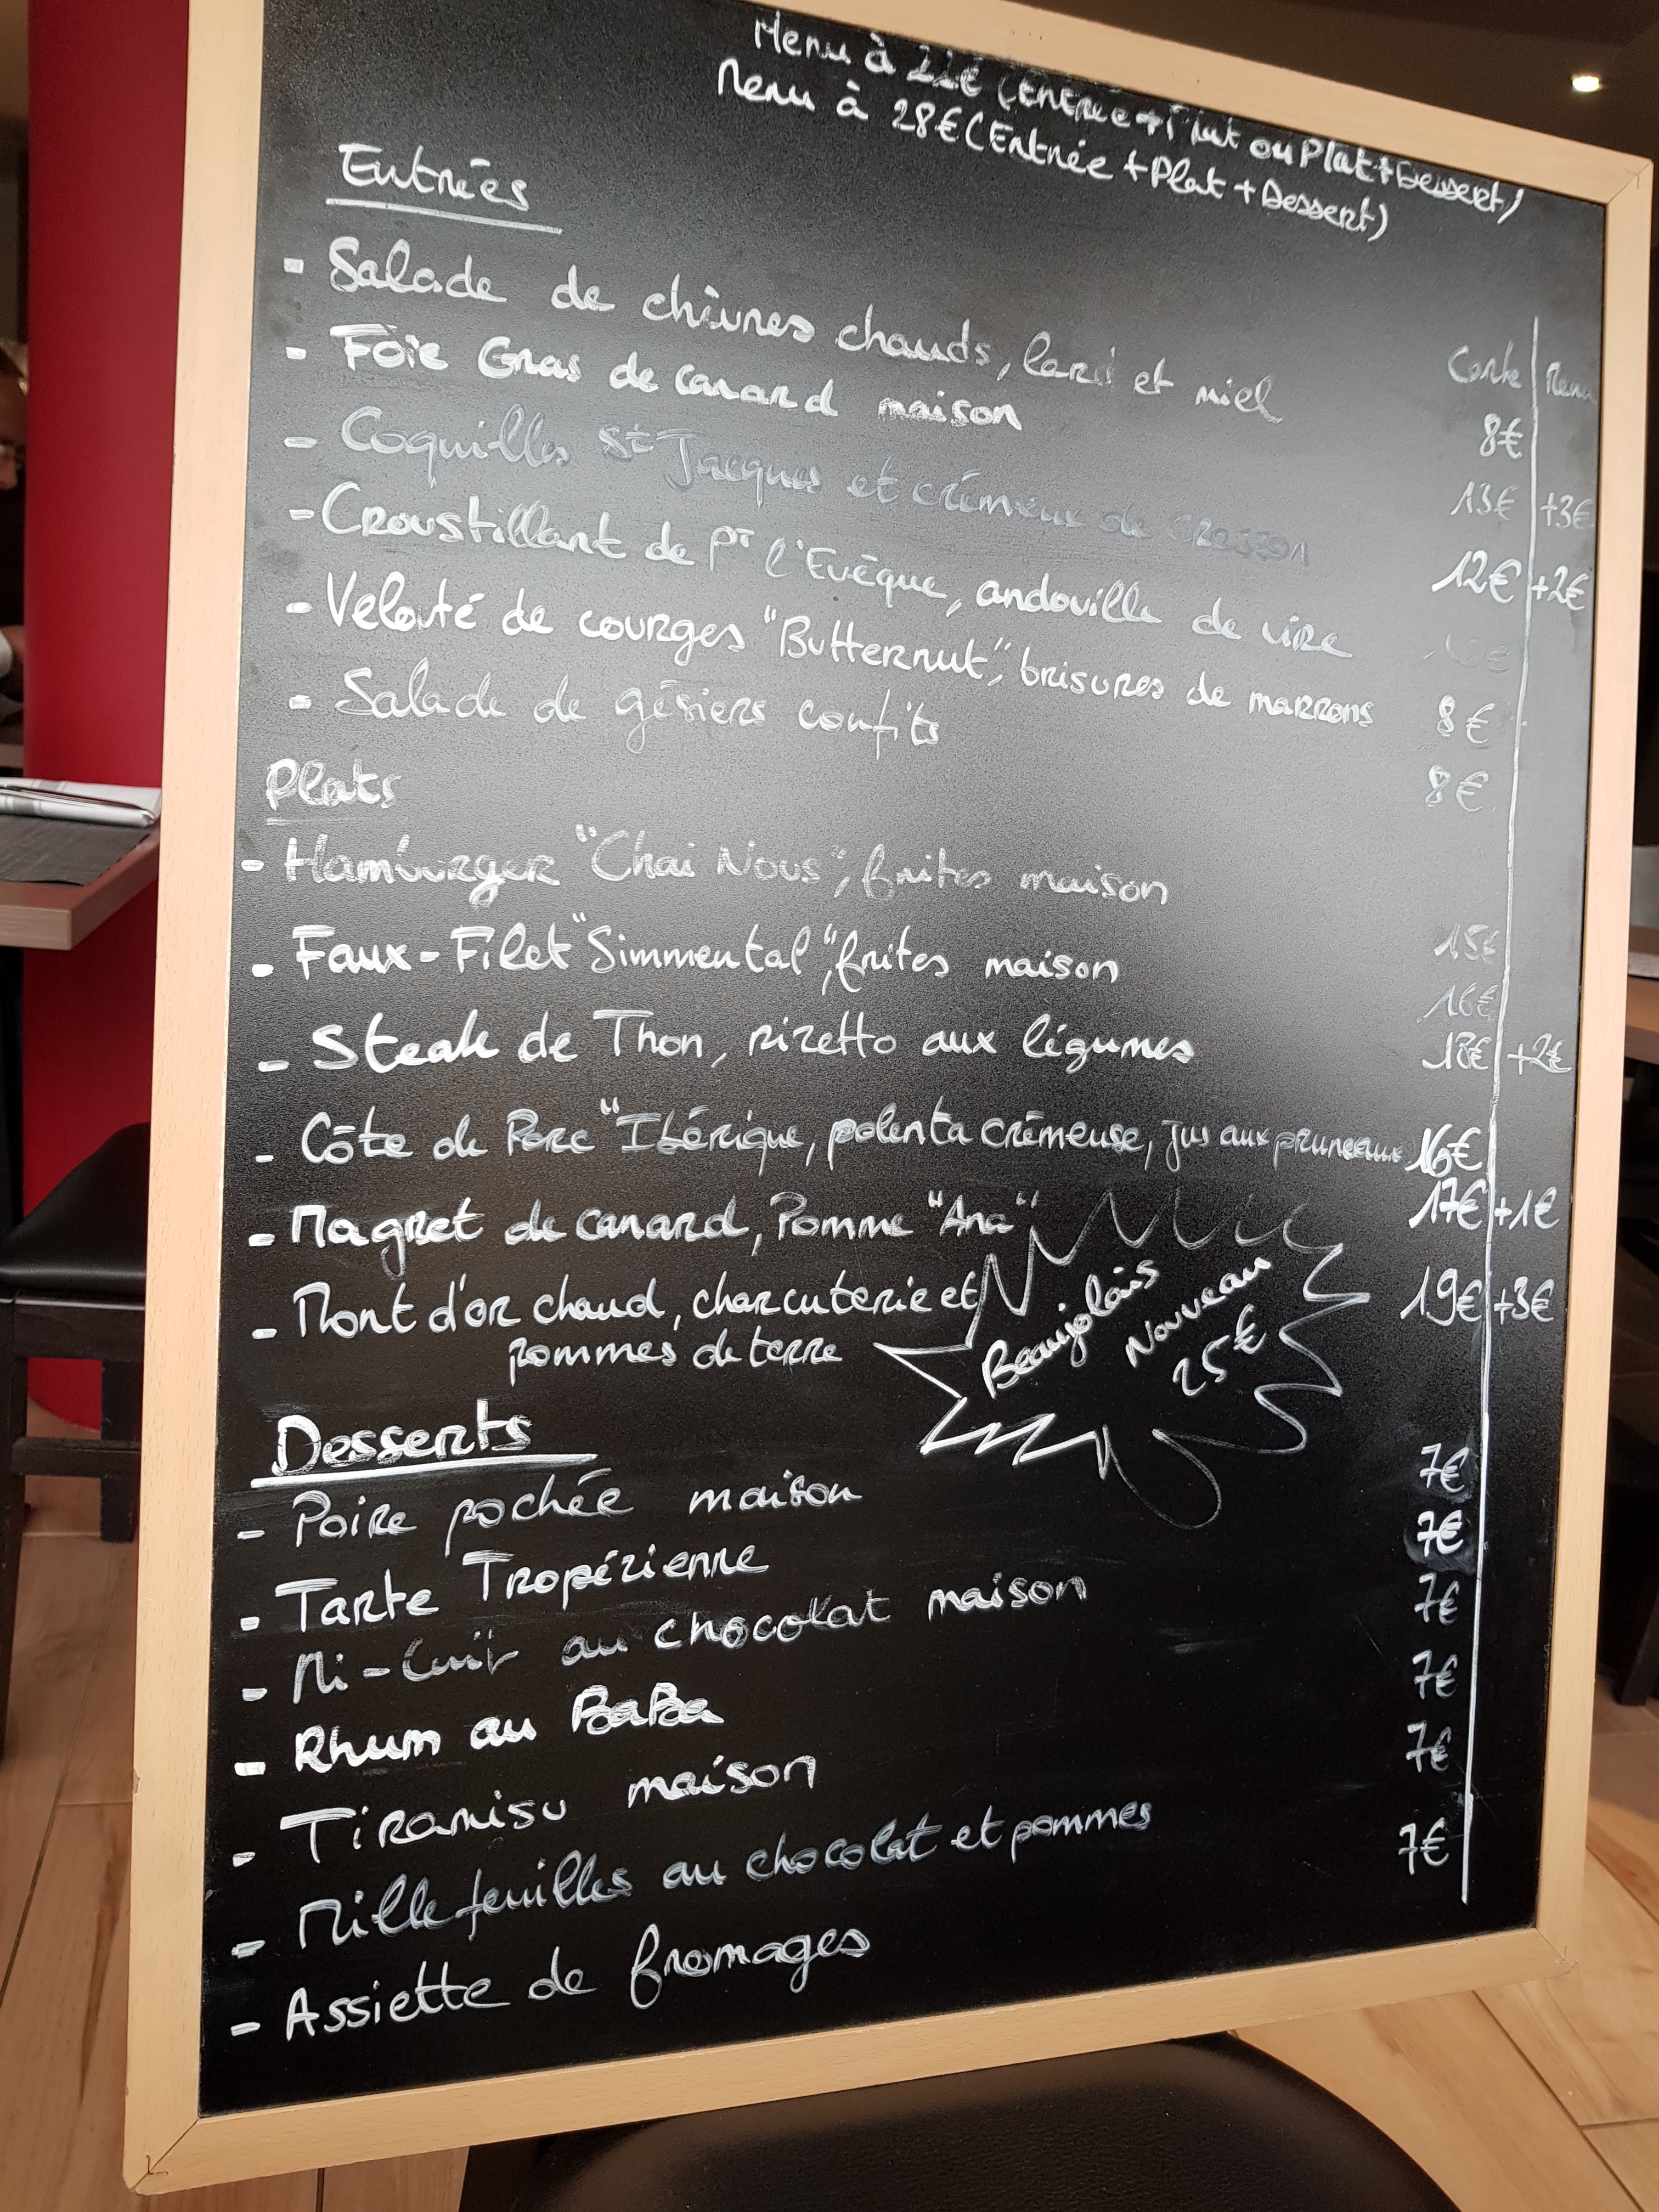 Menu à 22€ (Entrée + Plat ou Plat + Dessert)
Menu à 28€ (Entrée + Plat + Dessert)
Entrées
Carte Menu
- Salade de chèvres chauds, lard et miel 8€
- Foie Gras de canard maison 13€ +3€
- Coquilles St Jacques et crémeux de cresson 12€ +2€
- Croustillant de Pt l'Evêque, andouille de vire
- Velouté de courges "Butternut", brisures de marrons 8€
- Salade de gésiers confits 8€
Plats
- Hamburger "Chai Nous", frites maison 15€
- Faux-Filet "Simmental", frites maison 16€
- Steak de Thon, rizetto aux légumes 18€ +2€
- Côte de Porc "Ibérique, polenta crémeuse, jus aux pruneaux 16€
- Magret de canard, Pomme "Ana" 17€ +1€
- Mont d'or chaud, charcuterie et 19€ +3€
pommes de terre
Beaujolais
Nouveau
25€
Desserts
- Poire pochée maison 7€
- Tarte Tropézienne 7€
- Mi-Cuit au chocolat maison 7€
- Rhum au BaBa 7€
- Tiramisu maison 7€
- Mille feuilles au chocolat et pommes 7€
- Assiette de fromages